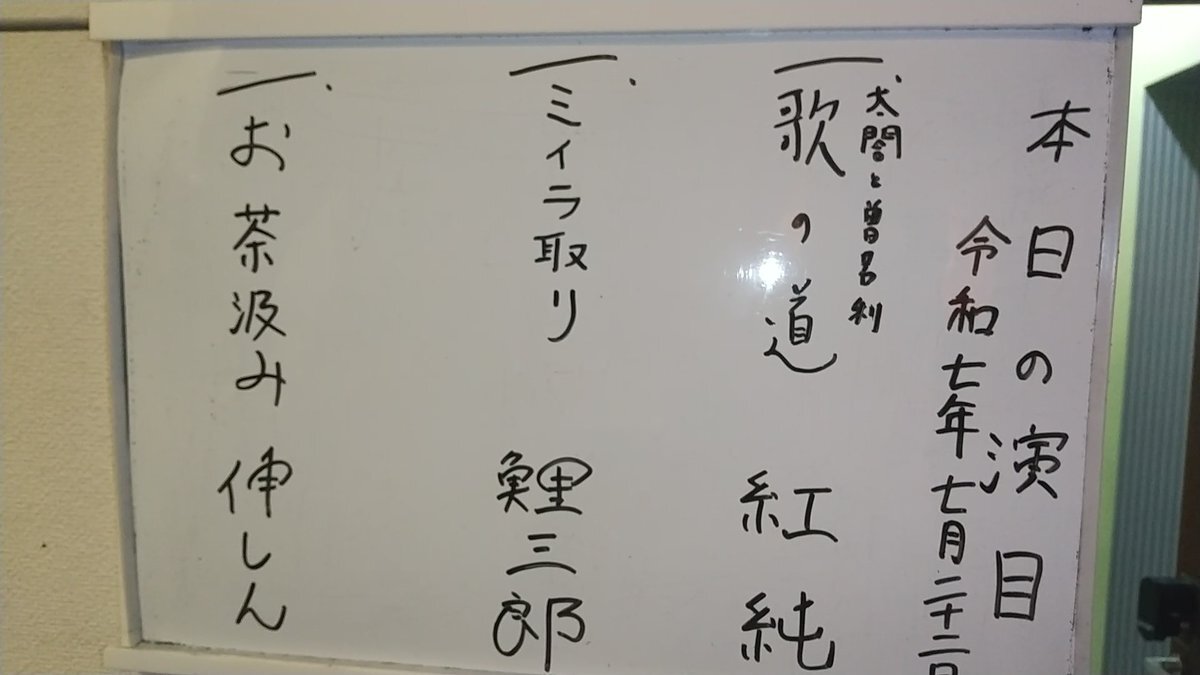 本日の演目
令和七年七月二十二日
一、歌の道 紅純
太閤と曽呂利
一、ミイラ取り 鯉三郎
一、お茶汲み 伸しん